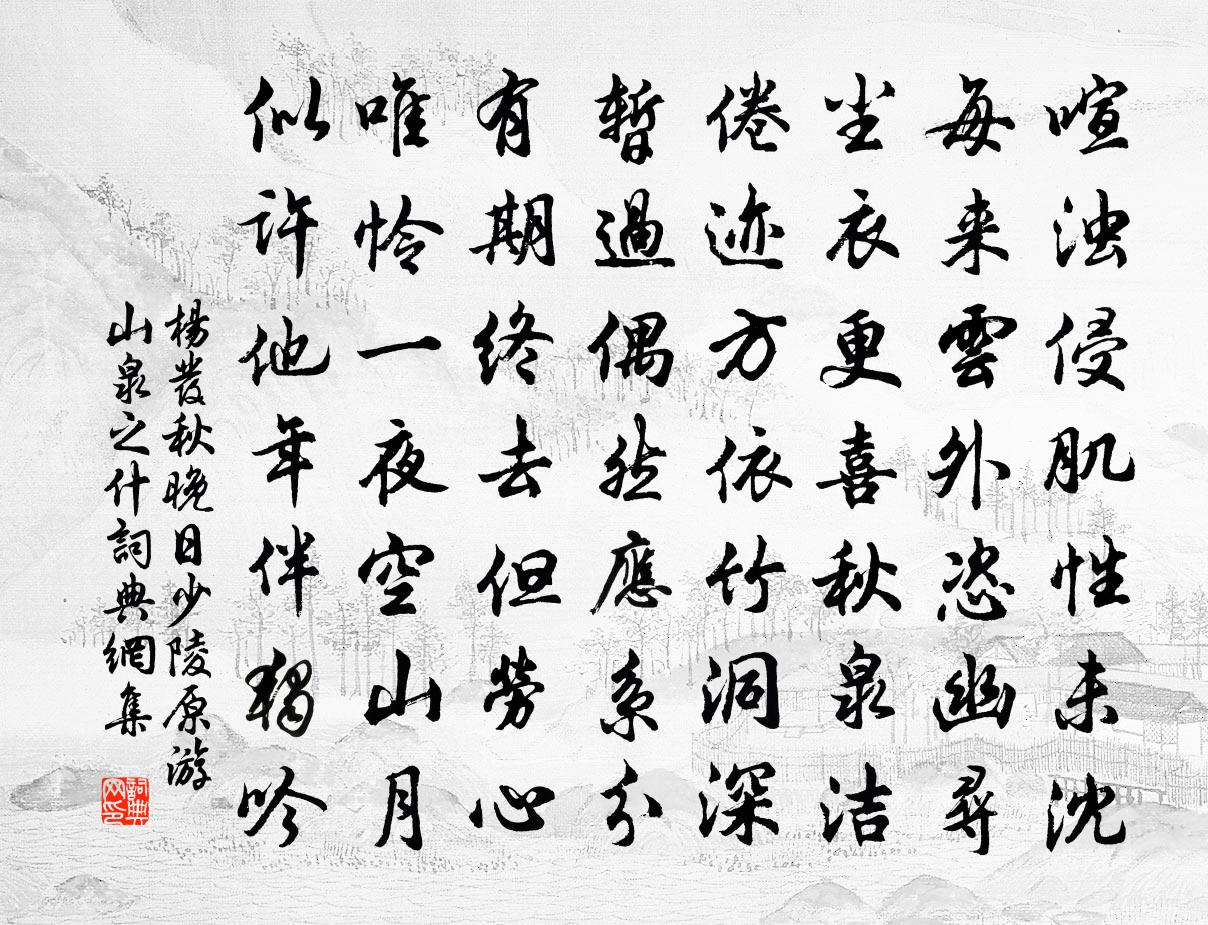 喧浊侵肌性未沈
每来雲外恣幽尋
尘衣更喜秋泉洁
倦迹方依竹洞深
暫過偶然應系分
有期终去但勞心
唯怜一夜空山月
似许他年伴独吟
楊發秋晚日少陵原游
山泉之什詞典網集
詞典
网印